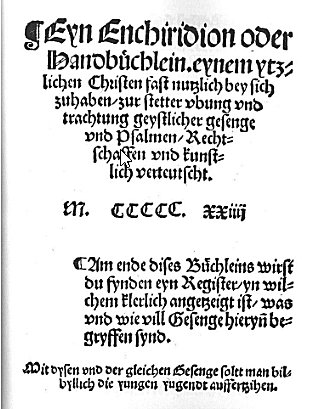 ¶Eyn Enchiridion oder
Handbůchlein. eynem ytz⸗
lichen Christen fast nutzlich bey sich
zuhaben/ zur stetter vbung vnd
trachtung geystlicher gesenge
vnd Psalmen/ Recht⸗
schaffen vnd kunst⸗
lich verteutscht.
M. CCCCC. xxiiij
¶Am ende dises Bůchleins wirst
du fynden eyn Register/ yn wil⸗
chem klerlich angetzeigt ist/ was
vnd wie vill Gesenge hieryn̄ be⸗
gryffen synd.
Mit dysen vnd der gleichen Gesenge solt man bil⸗
byllich die yungen yugendt auffertzihen.